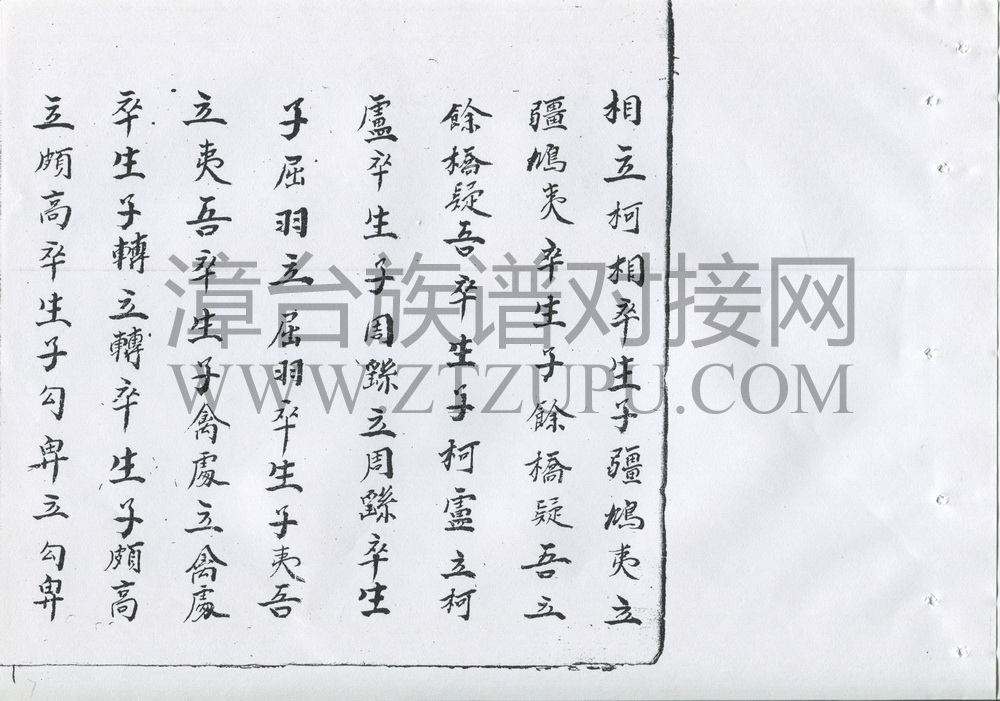 相立柯相卒生子疆鳩夷立
疆鳩夷卒生子餘橋疑吾立
餘橋疑吾卒生子柯盧立柯
盧卒生子周繇立周繇卒生
子屈羽立屈羽卒生子夷吾
立夷吾卒生子禽處立禽處
卒生子轉立轉卒生子頗高
立頗高卒生子勾卑立勾卑
漳台族谱对接网
WWW.ZTZUPU.COM